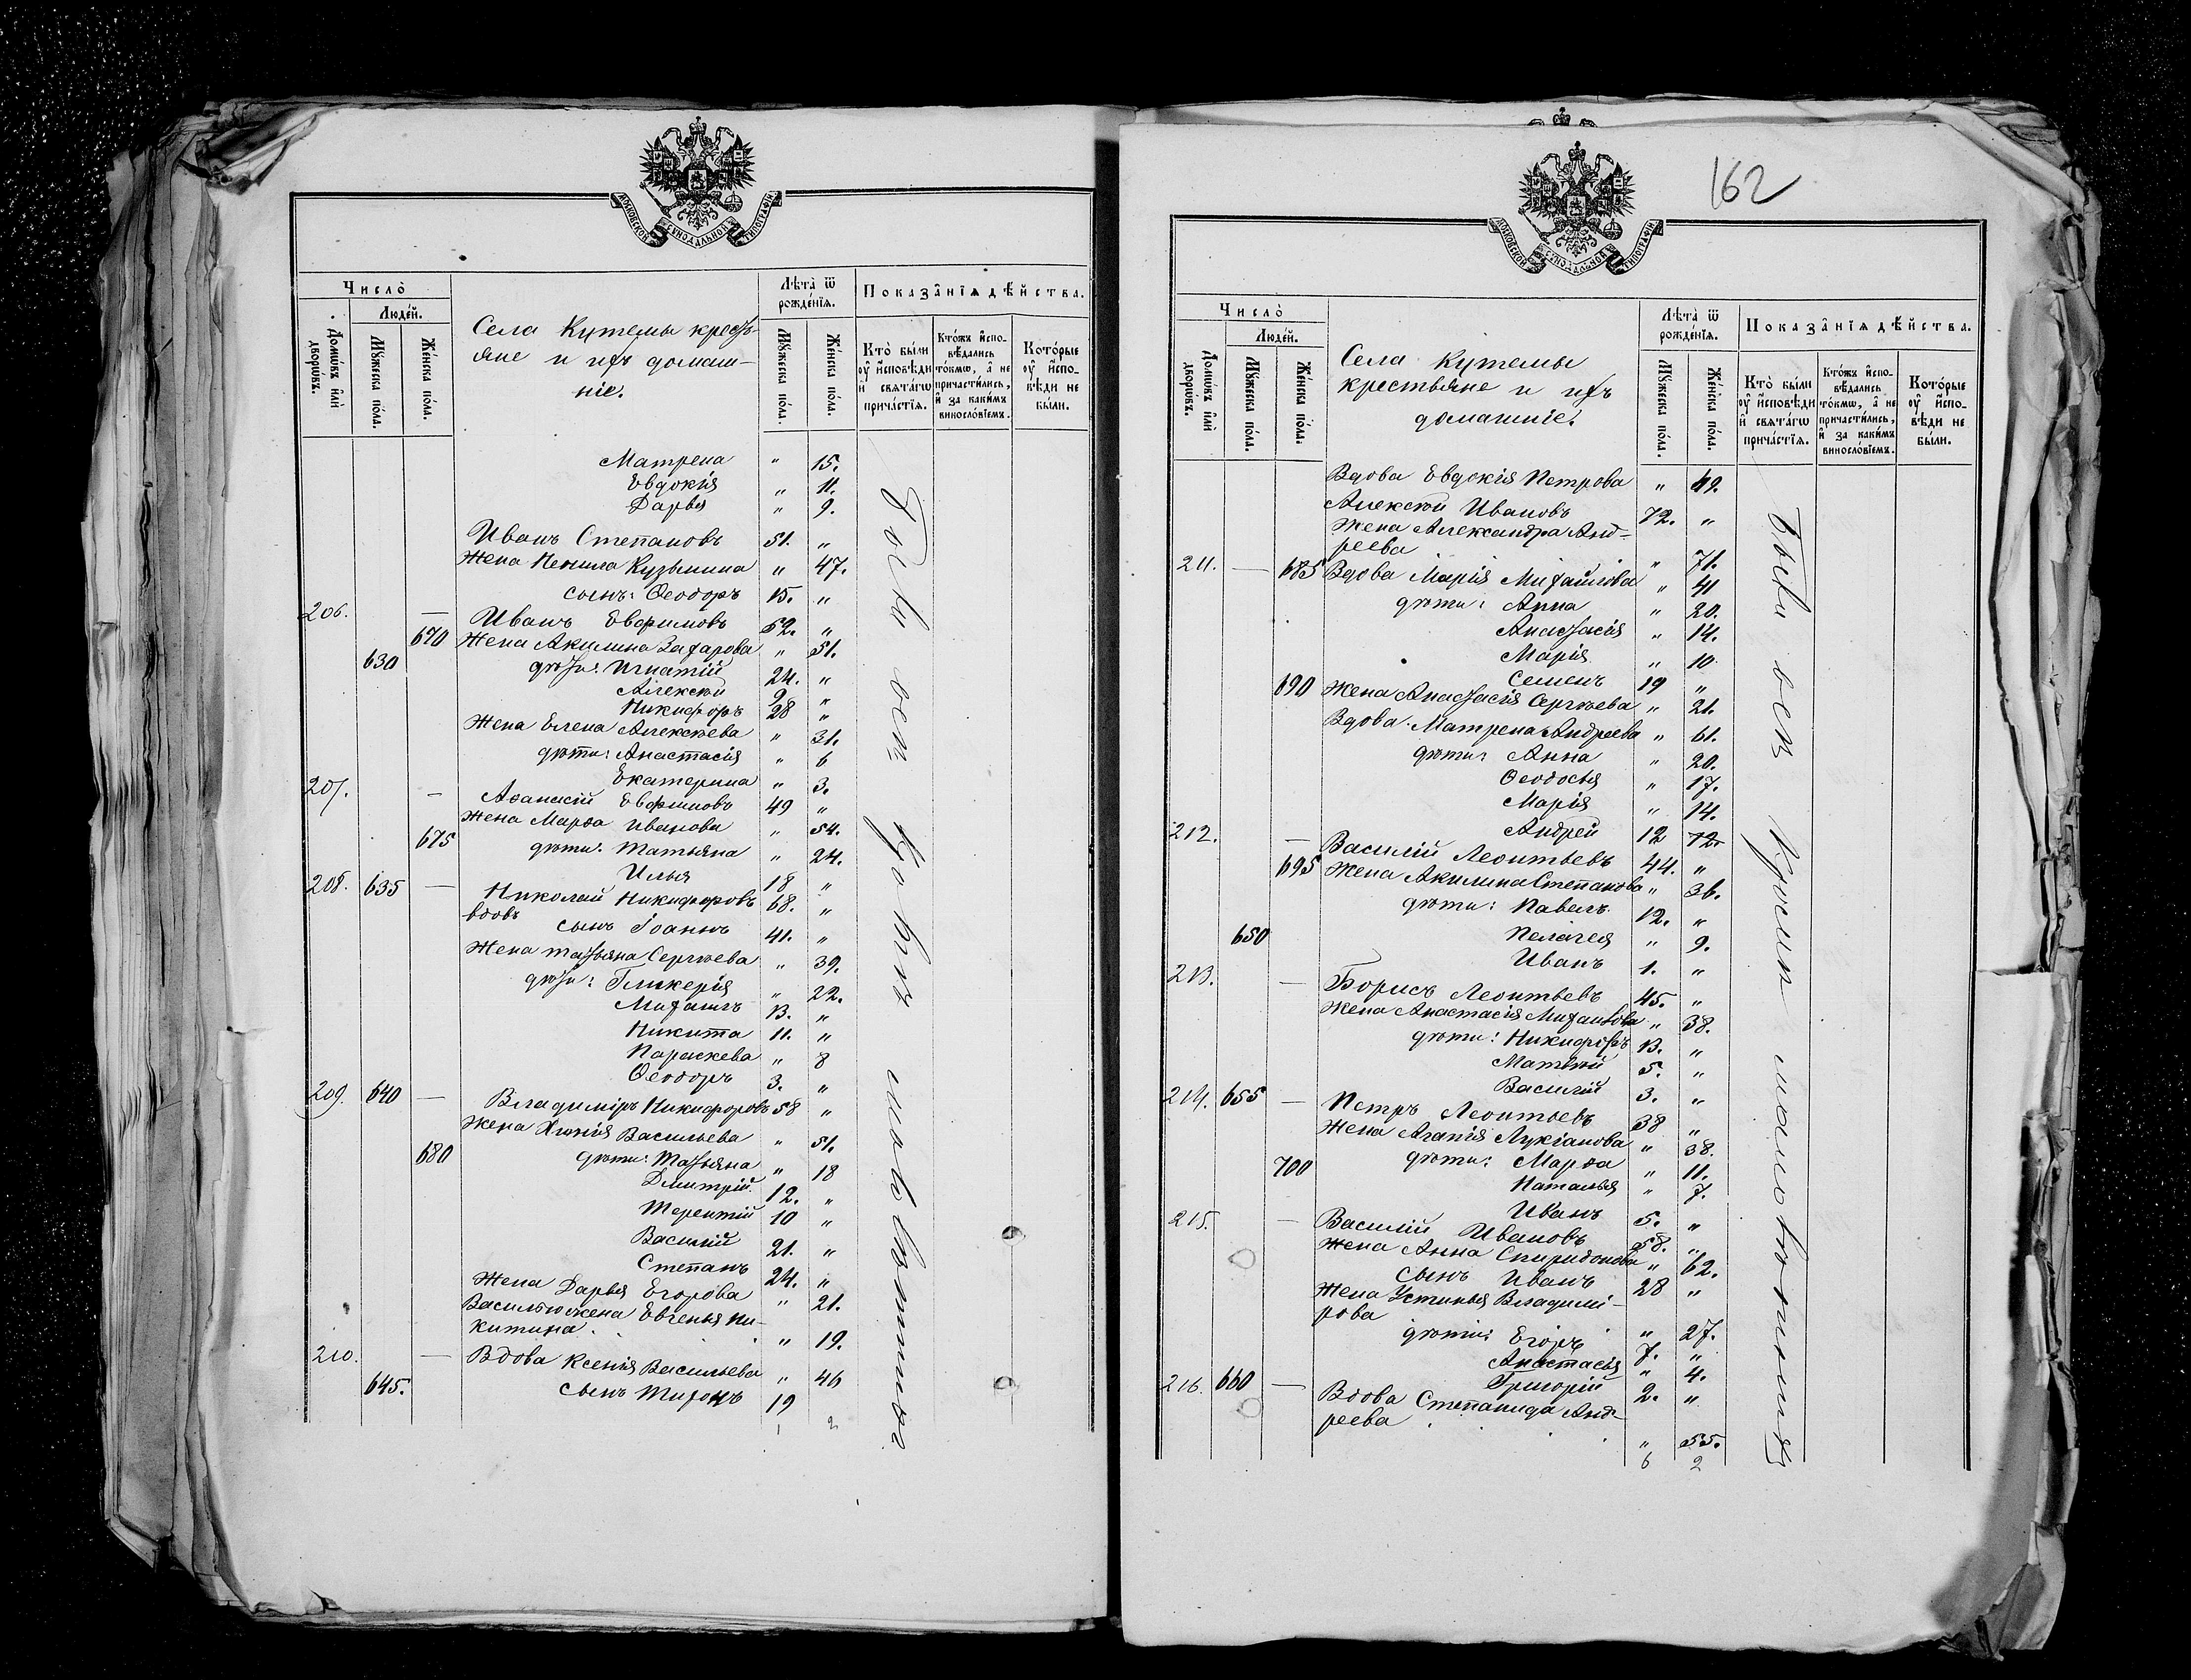 МОСКОВСКОЙ СѴНОДАЛЬНОЙ ТИПОГРАФІИ
Число̀
Людей.
Домѡвъ и҆лѝ дворѡвъ.
Мꙋжеска по́ла.
Же́нска по́ла.
Села Кутемы кресть-
яне и ихъ домаш-
ніе.
Лѣта̀ ѿ рожде́нїѧ.
Мꙋжеска по́ла.
Же́нска по́ла.
Показа̂нїѧ дѣ́йства.
Кто̀ бы́ли оу҆ и҆сповѣди и҆ свѧта́гѡ прича́стїѧ.
Кто́жъ и҆спо-вѣдались то́кмѡ, а҆ не причасти́лись, и҆ за каки́мъ винословїемъ.
Кото́рые оу҆ и҆спо-вѣди не бы́ли.
Матрена " 15.
Евдокія " 11.
Дарья " 9.
Иванъ Степановъ 51. "
Жена Ненила Кузьмина " 47.
сынъ: Ѳеодоръ 15. "
206. — Иванъ Евфимовъ 52. "
670 Жена Акилина Захарова " 51.
630 дѣти: Игнатій 24. "
Алексѣй 9 "
Никифоръ 28 "
Жена Елена Алексѣева " 31.
дѣти: Анастасія " 6
Екатерина " 3.
207. — Аѳанасій Евфимовъ 49 "
Жена Марѳа Иванова " 54.
675 дѣти: Татьяна " 24.
Илья 18 "
208. 635 — Николай Никифоровъ 68. "
вдовъ
сынъ Іоаннъ 41. "
Жена Татьяна Сергѣева " 39.
дѣти: Гликерія " 22.
Михаилъ 13. "
Никита 11. "
Параскева " 8
Ѳеодоръ 3. "
209. 640 — Владиміръ Никифоровъ 58 "
Жена Хіонія Васильева " 51.
680 дѣти: Татьяна " 18
Дмитрій 12. "
Терентій 10 "
Василій 21. "
Степанъ 24. "
Жена Дарья Егорова " 21.
Василью жена Евгенья Ни-
китина " 19.
210. — Вдова Ксенія Васильева " 46
645. сынъ Тихонъ 19
1 2
Были всѣ кромѣ малолѣтнихъ
162
МОСКОВСКОЙ СѴНОДАЛЬНОЙ ТИПОГРАФІИ
Число̀
Людей.
Домѡвъ и҆лѝ дворѡвъ.
Мꙋжеска по́ла.
Же́нска по́ла.
Села Кутемы
крестьяне и ихъ
домашніе.
Лѣта̀ ѿ рожде́нїѧ.
Мꙋжеска по́ла.
Же́нска по́ла.
Показа̂нїѧ дѣ́йства.
Кто̀ бы́ли оу҆ и҆сповѣди и҆ свѧта́гѡ прича́стїѧ.
Кто́жъ и҆спо-вѣдались то́кмѡ, а҆ не причасти́лись, и҆ за каки́мъ винословїемъ.
Кото́рые оу҆ и҆спо-вѣди не бы́ли.
Вдова Евдокія Петрова " 49.
Алексѣй Ивановъ 72. "
Жена Александра Анд-
реева " 71.
211. — 685 Вдова Марія Михайлова " 41
дѣти: Анна " 20.
Анастасія " 14.
Марія " 10
Семенъ 19 "
690 Жена Анастасія Сергѣева " 21.
Вдова Матрена Андреева " 61.
дѣти: Анна " 20.
Ѳеодосья " 17.
Марія " 14.
Андрей 12 12
212. — Василій Леонтьевъ 44. "
695 Жена Акилина Степанова " 36.
дѣти: Павелъ 12. "
650 Пелагея " 9.
Иванъ 1. "
213. — Борисъ Леонтьевъ 45. "
Жена Анастасія Михайлова " 38.
дѣти: Никифоръ 13. "
Матвѣй 5. "
Василій 3. "
214. 655 — Петръ Леонтьевъ 38 "
Жена Агапія Лукіанова " 38.
700 дѣти: Марѳа " 11.
Наталья " 7.
Иванъ 5. "
215. — Василій Ивановъ 58. "
Жена Анна Спиридонова " 62.
сынъ Иванъ 28 "
Жена Устинья Владимі-
рова " 27.
дѣти: Егоръ 7. "
Анастасья " 4.
Григорій 2. "
216. 660 — Вдова Степанида Анд-
реева " 55.
6 2
Были всѣ кромѣ малолѣтнихъ